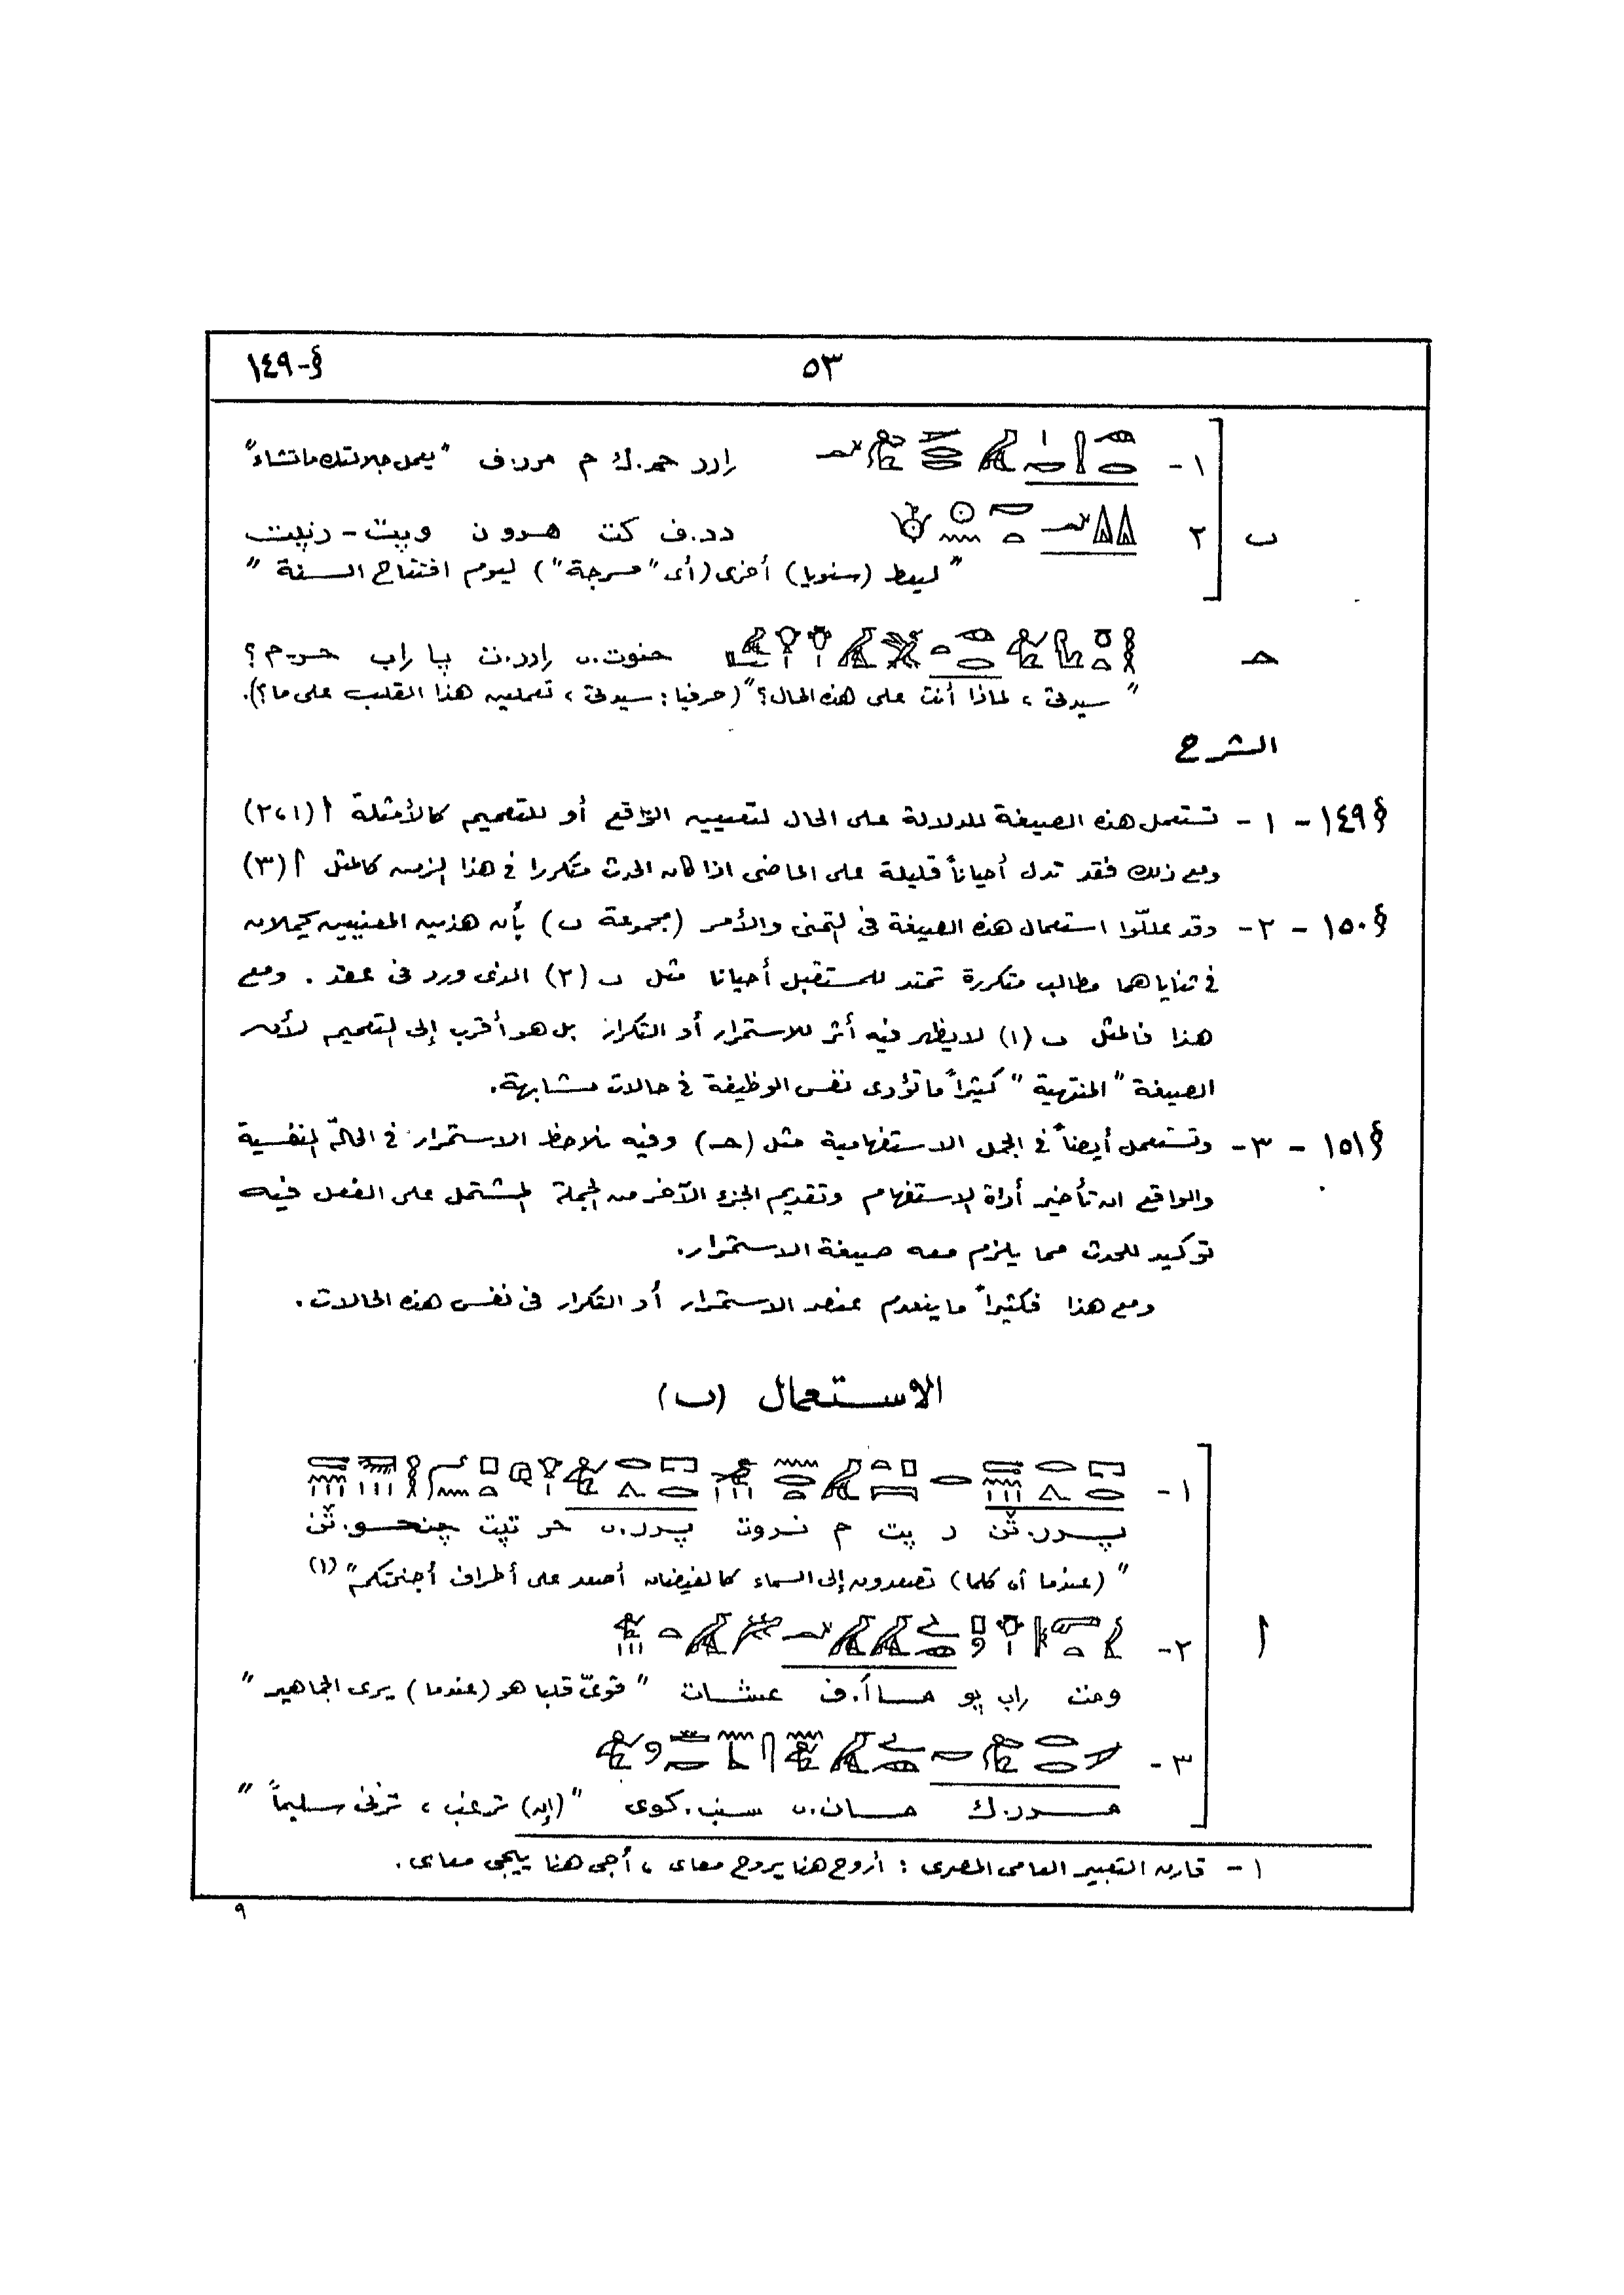 §-١٤٩ ٥٣
١- رارر حم.ك م مرر.ف "يعمل جلالتك ماتشاء"
ب ٢ دد.ف كت هرو ن وپت - رنپت
" ليعط (سنويا) أخرى (أى "مسرجة") ليوم افتتاح السنة "
حـ حنوت.ى رارر.ت پا راب حر-م ؟
" سيدتى ، لماذا أنت على هذه الحال؟" (حرفيا : سيدتى ، تعملين هذا القلب على ما؟).
الشرح
§١٤٩ - ١ - تستعمل هذه الصيغة للدلالة على الحال لتعيين الواقع أو للتعميم كالأمثلة أ (١،٢)
ومع ذلك فقد تدل أحياناً قليلة على الماضى اذا كان الحدث متكررا فى هذا الزمن كالمثل أ (٣)
§١٥٠ - ٢ - وقد عللّوا استعمال هذه الصيغة فى التمنى والأمر (مجموعة ب) بأن هذين المعنيين يحملان
فى ثناياهما مطالب متكررة تمتد للمستقبل أحيانا مثل ب (٢) الذى ورد فى عقد . ومع
هذا فالمثل ب (١) لا يظهر فيه أثر للاستمرار أو التكرار بل هو أقرب إلى التعميم لأن
الصيغة "المنتهية" كثيراً ما تؤدى نفس الوظيفة فى حالات مشابهة.
§١٥١ - ٣ - وتستعمل أيضاً فى الجمل الاستفهامية مثل (حـ) وفيه نلاحظ الاستمرار فى الحالة النفسية
والواقع ان تأخير أداة الاستفهام وتقديم الجزء الآخر من الجملة المشتمل على الفعل فيه
توكيد للحدث مما يلزم معه صيغة الاستمرار.
ومع هذا فكثيراً ما ينعدم عنصر الاستمرار أو التكرار فى نفس هذه الحالات.
الاستعمال (ب)
١-
پرر.ثن ر پت م نروت پرر.ى حر تپت چنحو.ثن
" (عندما أو كلما) تصعدون إلى السماء كالفيضان أصعد على أطراف أجنحتكم" (١)
أ ٢-
ومت راب پو ماأ.ف عشات "قوىّ قلبا هو (عندما) يرى الجماهير"
٣-
مرر.ك مان.ى سنب.كوى "(إن) ترغب ، ترنى سليماً"
١ - قارن التعبير العامى المصرى : أروح هنا يروح معاى ، أجى هنا ييجى معاى .
٩